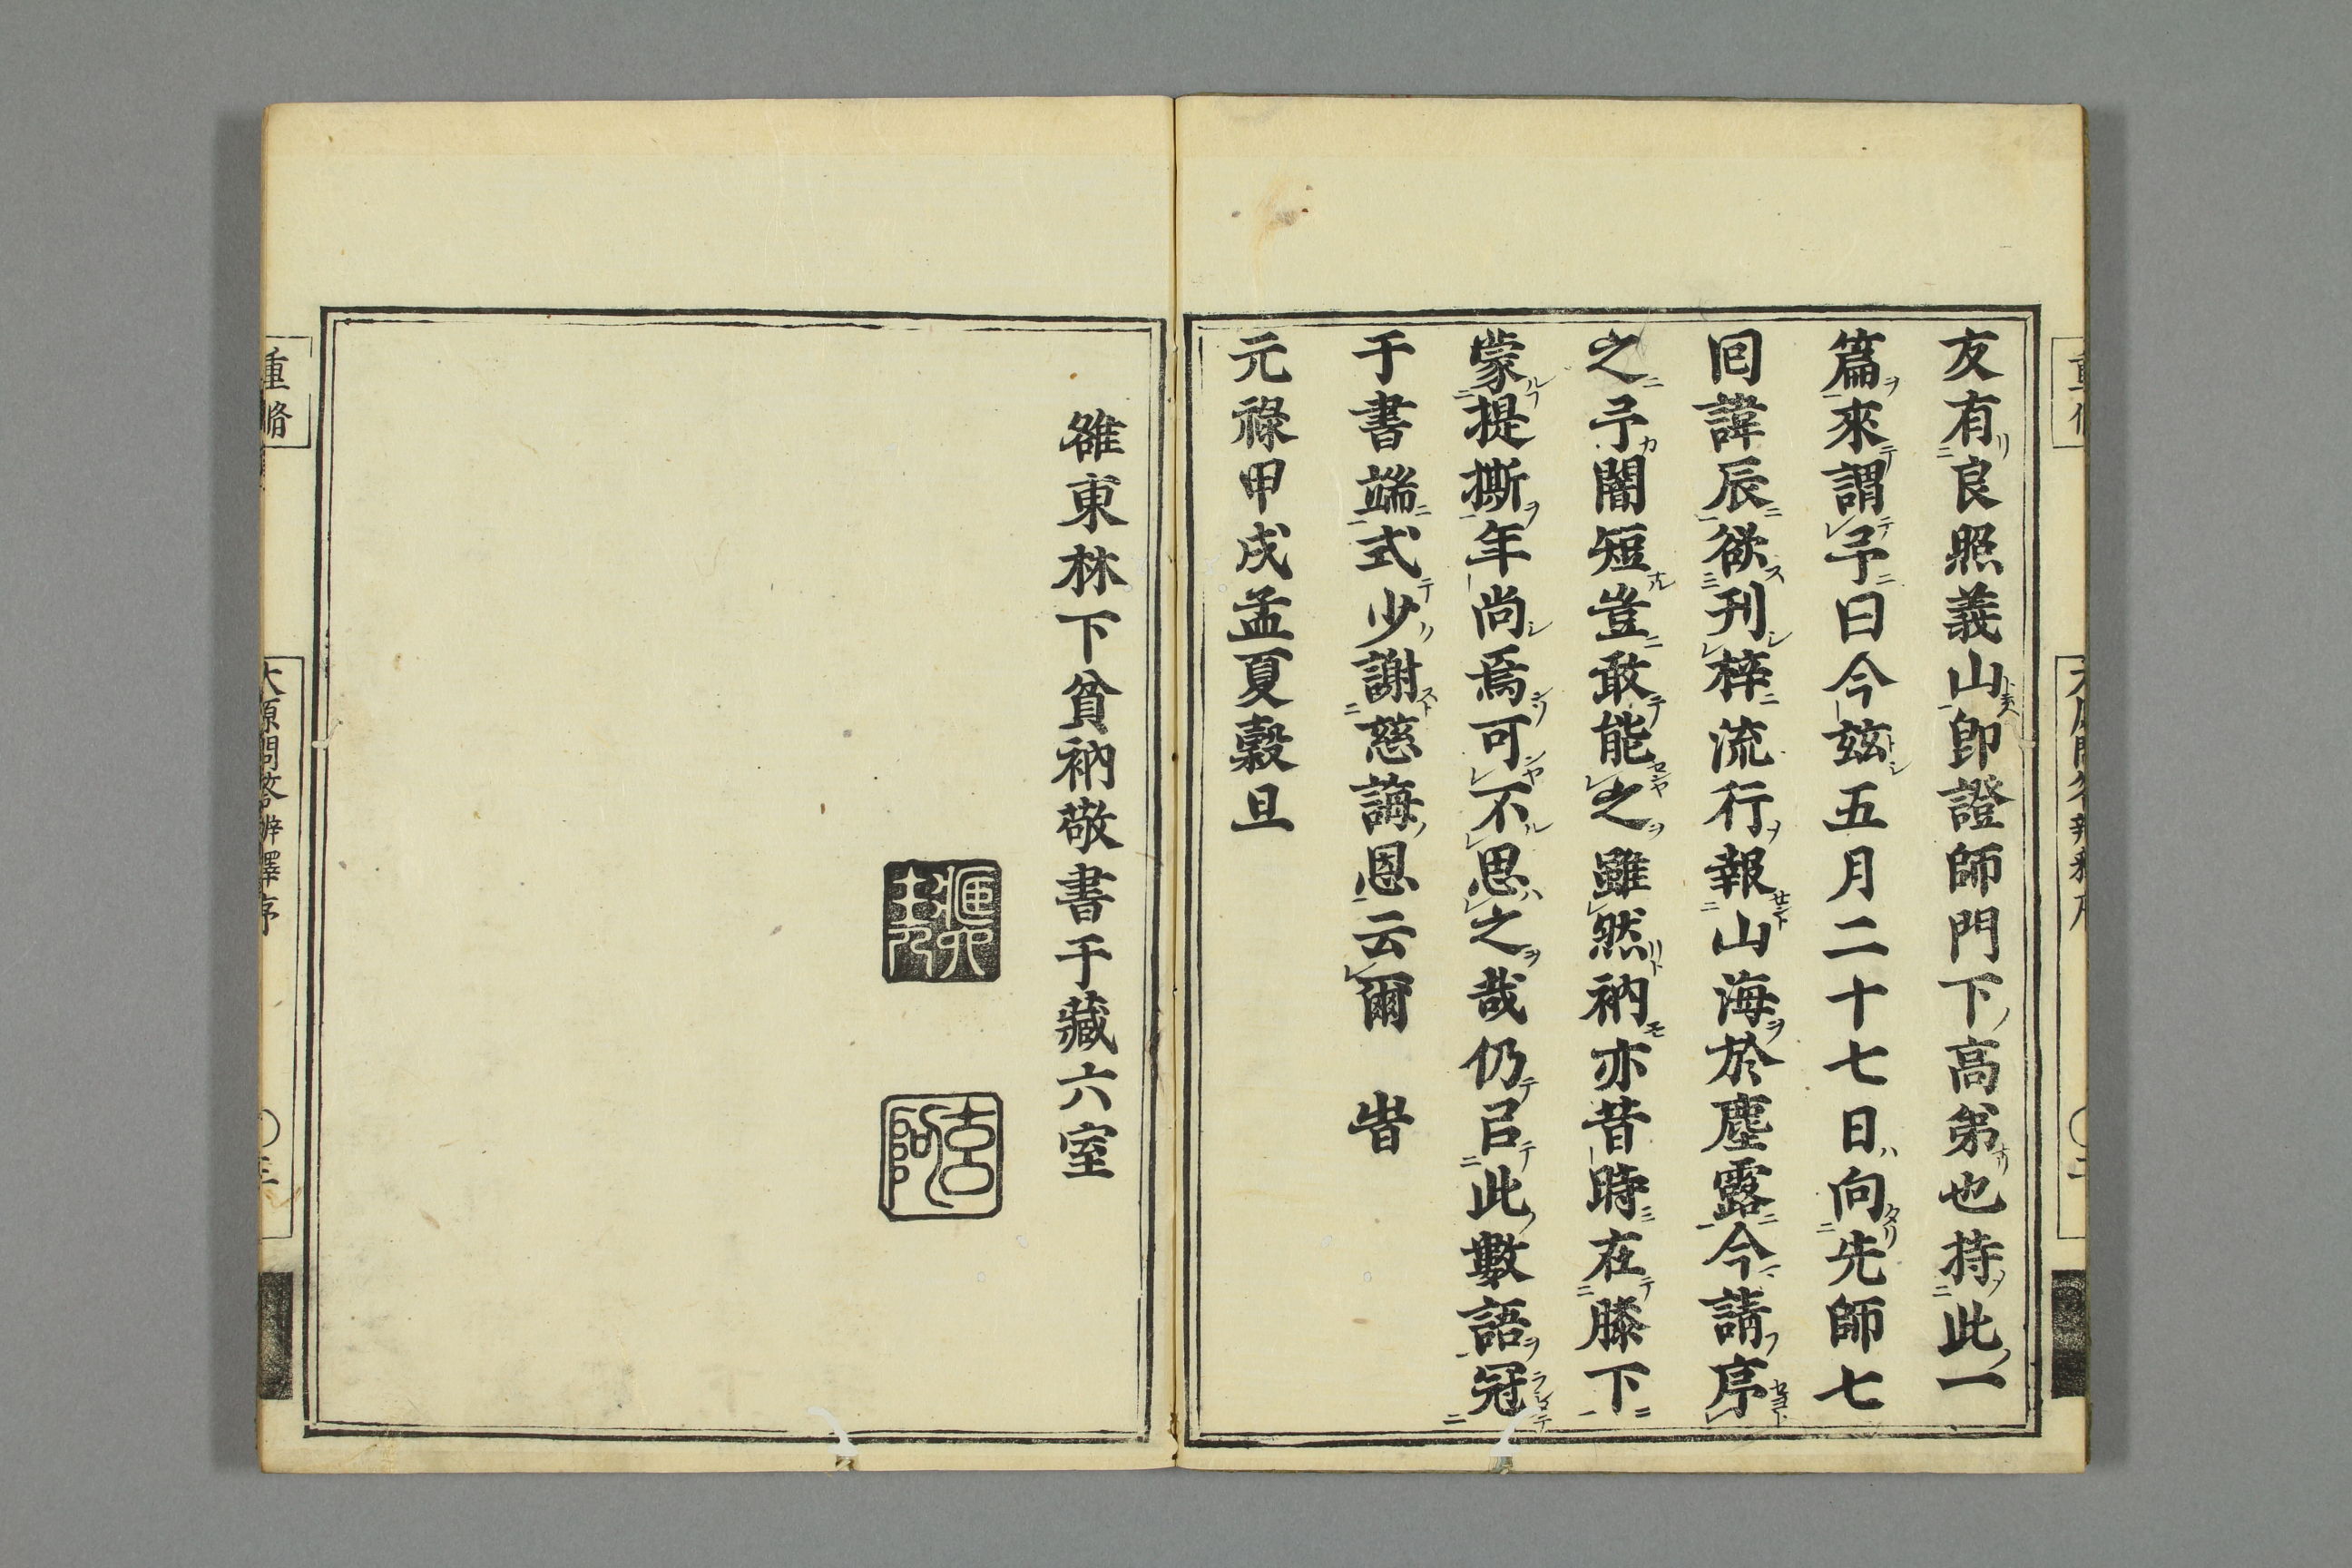 友有良照義山即證師門下高弟也持此一
篇來謂予曰今玆五月二十七日向先師七
囘諱辰欲刊梓流行報山海於塵露今請序
之予闇短豈敢能之雖然衲亦昔時在膝下
蒙提撕年尚焉可不思之哉仍㠯此數語冠
于書端式少謝慈誨恩云爾 旹
元祿甲戌孟夏穀旦
雒東林下貧衲敬書于藏六室
重脩
大原問答辨釋序
三